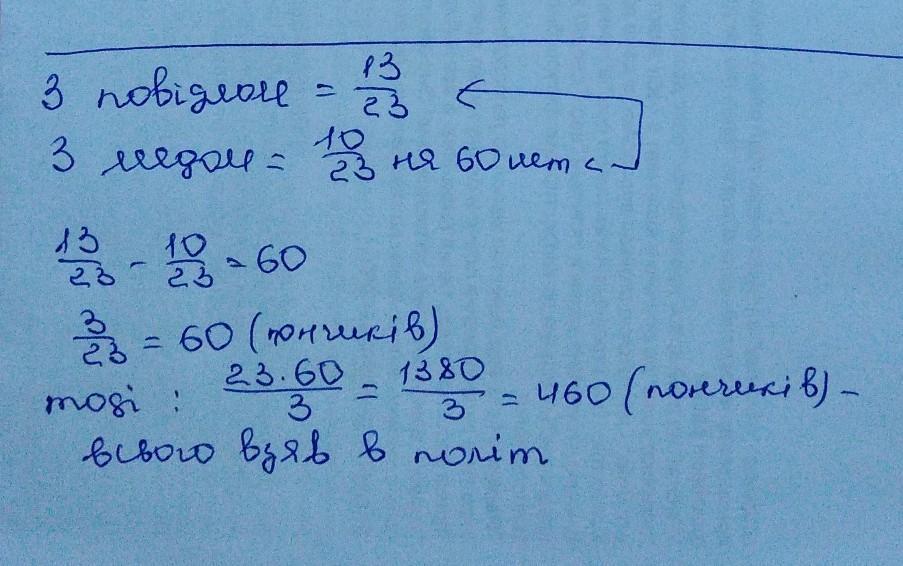 З повідлом = 13/23
З медом = 10/23 на 60 шт <
13/23 - 10/23 = 60
3/23 = 60 (пончиків)
тоді : 23·60/3 = 1380/3 = 460 (пончиків) -
всього взяв в політ